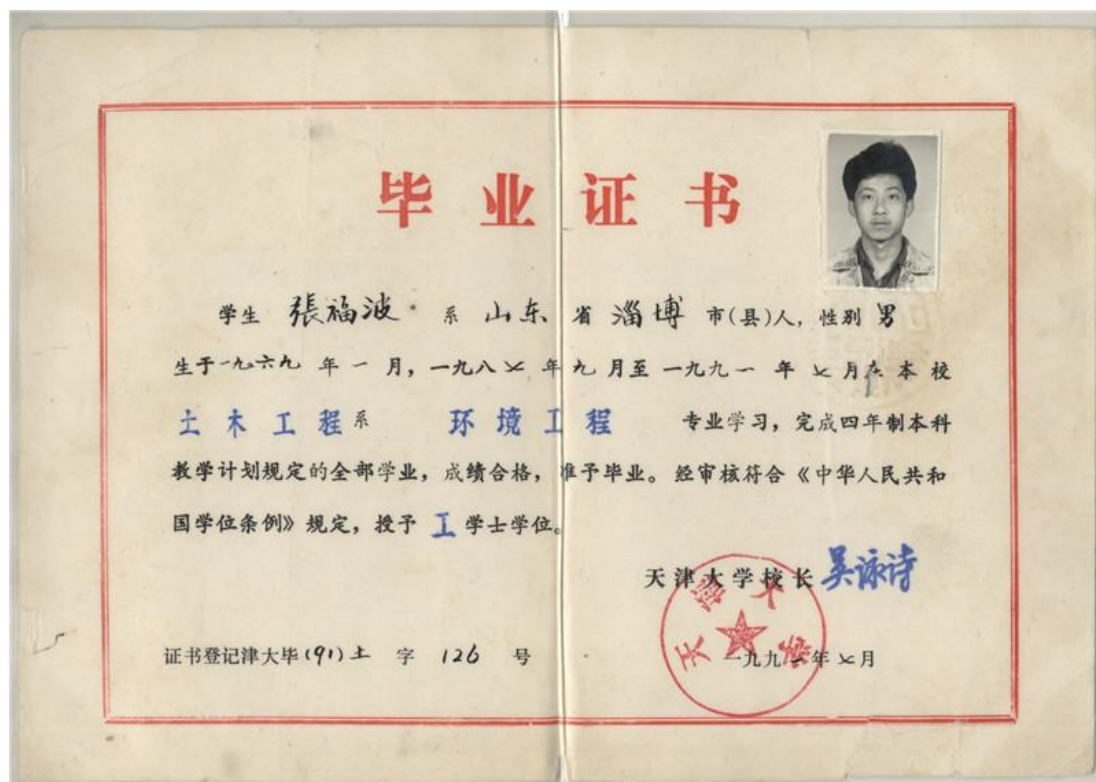 毕业证书
学生 張福波 系 山东 省 淄博 市(县)人, 性别 男
生于一九六九 年 一 月, 一九八七 年 九 月至 一九九一 年 七 月在本校
土木工程系 环境工程 专业学习, 完成四年制本科
教学计划规定的全部学业, 成绩合格, 准予毕业。经审核符合《中华人民共和
国学位条例》规定, 授予 工 学士学位。
天津大学校长 吴咏诗
天津大学
证书登记津大毕(91)土 字 126 号
一九九一年七月